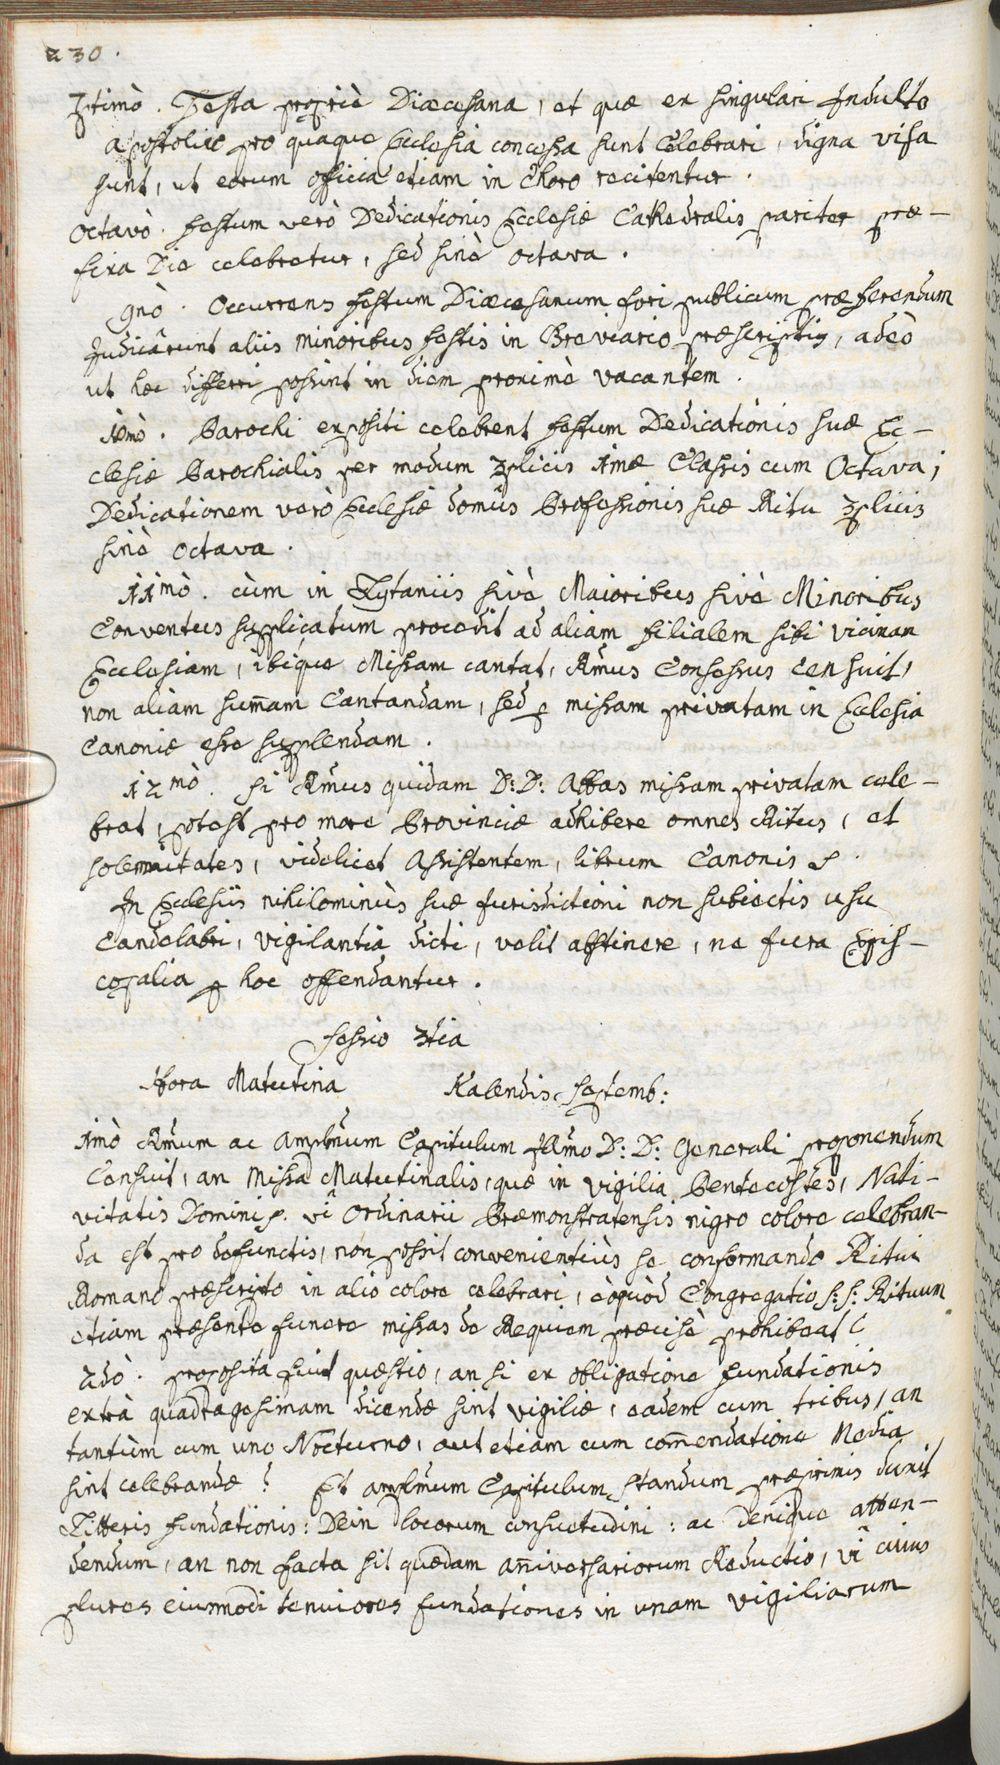 230.
7timò. Festa propria Diæcesana, et quæ ex singulari Indulto
apostolico pro quaque Ecclesia concessa sunt Celebrari, digna visa
sunt, ut eorum officia etiam in Choro recitentur.
Octavò. festum verò Dedicationis Ecclesiæ Cathedralis pariter præ-
fixa Die celebretur, sed sinè octava.
9nò. Occurrens festum Diæcesanum fori publicum præferendum
Judicârunt aliis minoribus festis in Breviario præscriptis, adeò
ut hæc differri possint in diem proximè vacantem.
10mò. Parochi expositi celebrent festum Dedicationis suæ Ec-
clesiæ Parochialis per modum 3plicis 1mæ Classis cum Octava;
Dedicationem verò Ecclesiæ domûs Professionis suæ Ritu 3plicis
sinè octava.
11mò. cùm in Lytaniis sivè Maioribus sivè Minoribus
Conventus supplicatum procedit ad aliam filialem sibi vicinam
Ecclesiam, ibique Missam cantat, Rmus Consessus censuit,
non aliam sum̄am Cantandam, sed p missam privatam in Ecclesia
Canoniæ esse supplendam.
12mò. si Rmus quidam D: D: Abbas missam privatam cele-
brat, potest pro more Provinciæ adhibere omnes Ritus, et
solemnitates, videlicet Assistentem, librum Canonis p.
In Ecclesiis nihilominùs suæ Jurisdictioni non subiectis usu
Candelabri, vigilantia dicti, velit abstinere, ne jura Epis-
copalia p hoc offendantur.
Sessio 3tia
Hora Matutina Kalendis Septemb:
1mò Rmum ac Amplmum Capitulum Illmo D: D: Generali proponendum
Censuit, an Missa Matutinalis, quæ in vigilia Pentecostes, Nati-
vitatis Domini p. vi Ordinarii Præmonstratensis nigro colore celebran-
da est pro defunctis, non possit convenientiùs se conformando Ritui
Romano præscripto in alio colore celebrari, eòquòd Congregatio S: S: Rituum
etiam præsente funere missas de Requiem præcisè prohibeat?
2dò. proposita fuit quæstio, an si ex obligatione fundationis
extrà quadragesimam dicendæ sint vigiliæ, eædem cum tribus, an
tantùm cum uno Nocturno, aut etiam cum com̄endatione Media
sint celebrandæ? Et amplmum Capitulum standum præprimis duxit
Litteris fundationis: Dein locorum consuetudini: ac denique atten-
dendum, an non facta sit quædam an̄iversariorum Reductio, vi cuius
plures eiusmodi tenuiores fundationes in unam vigiliarum